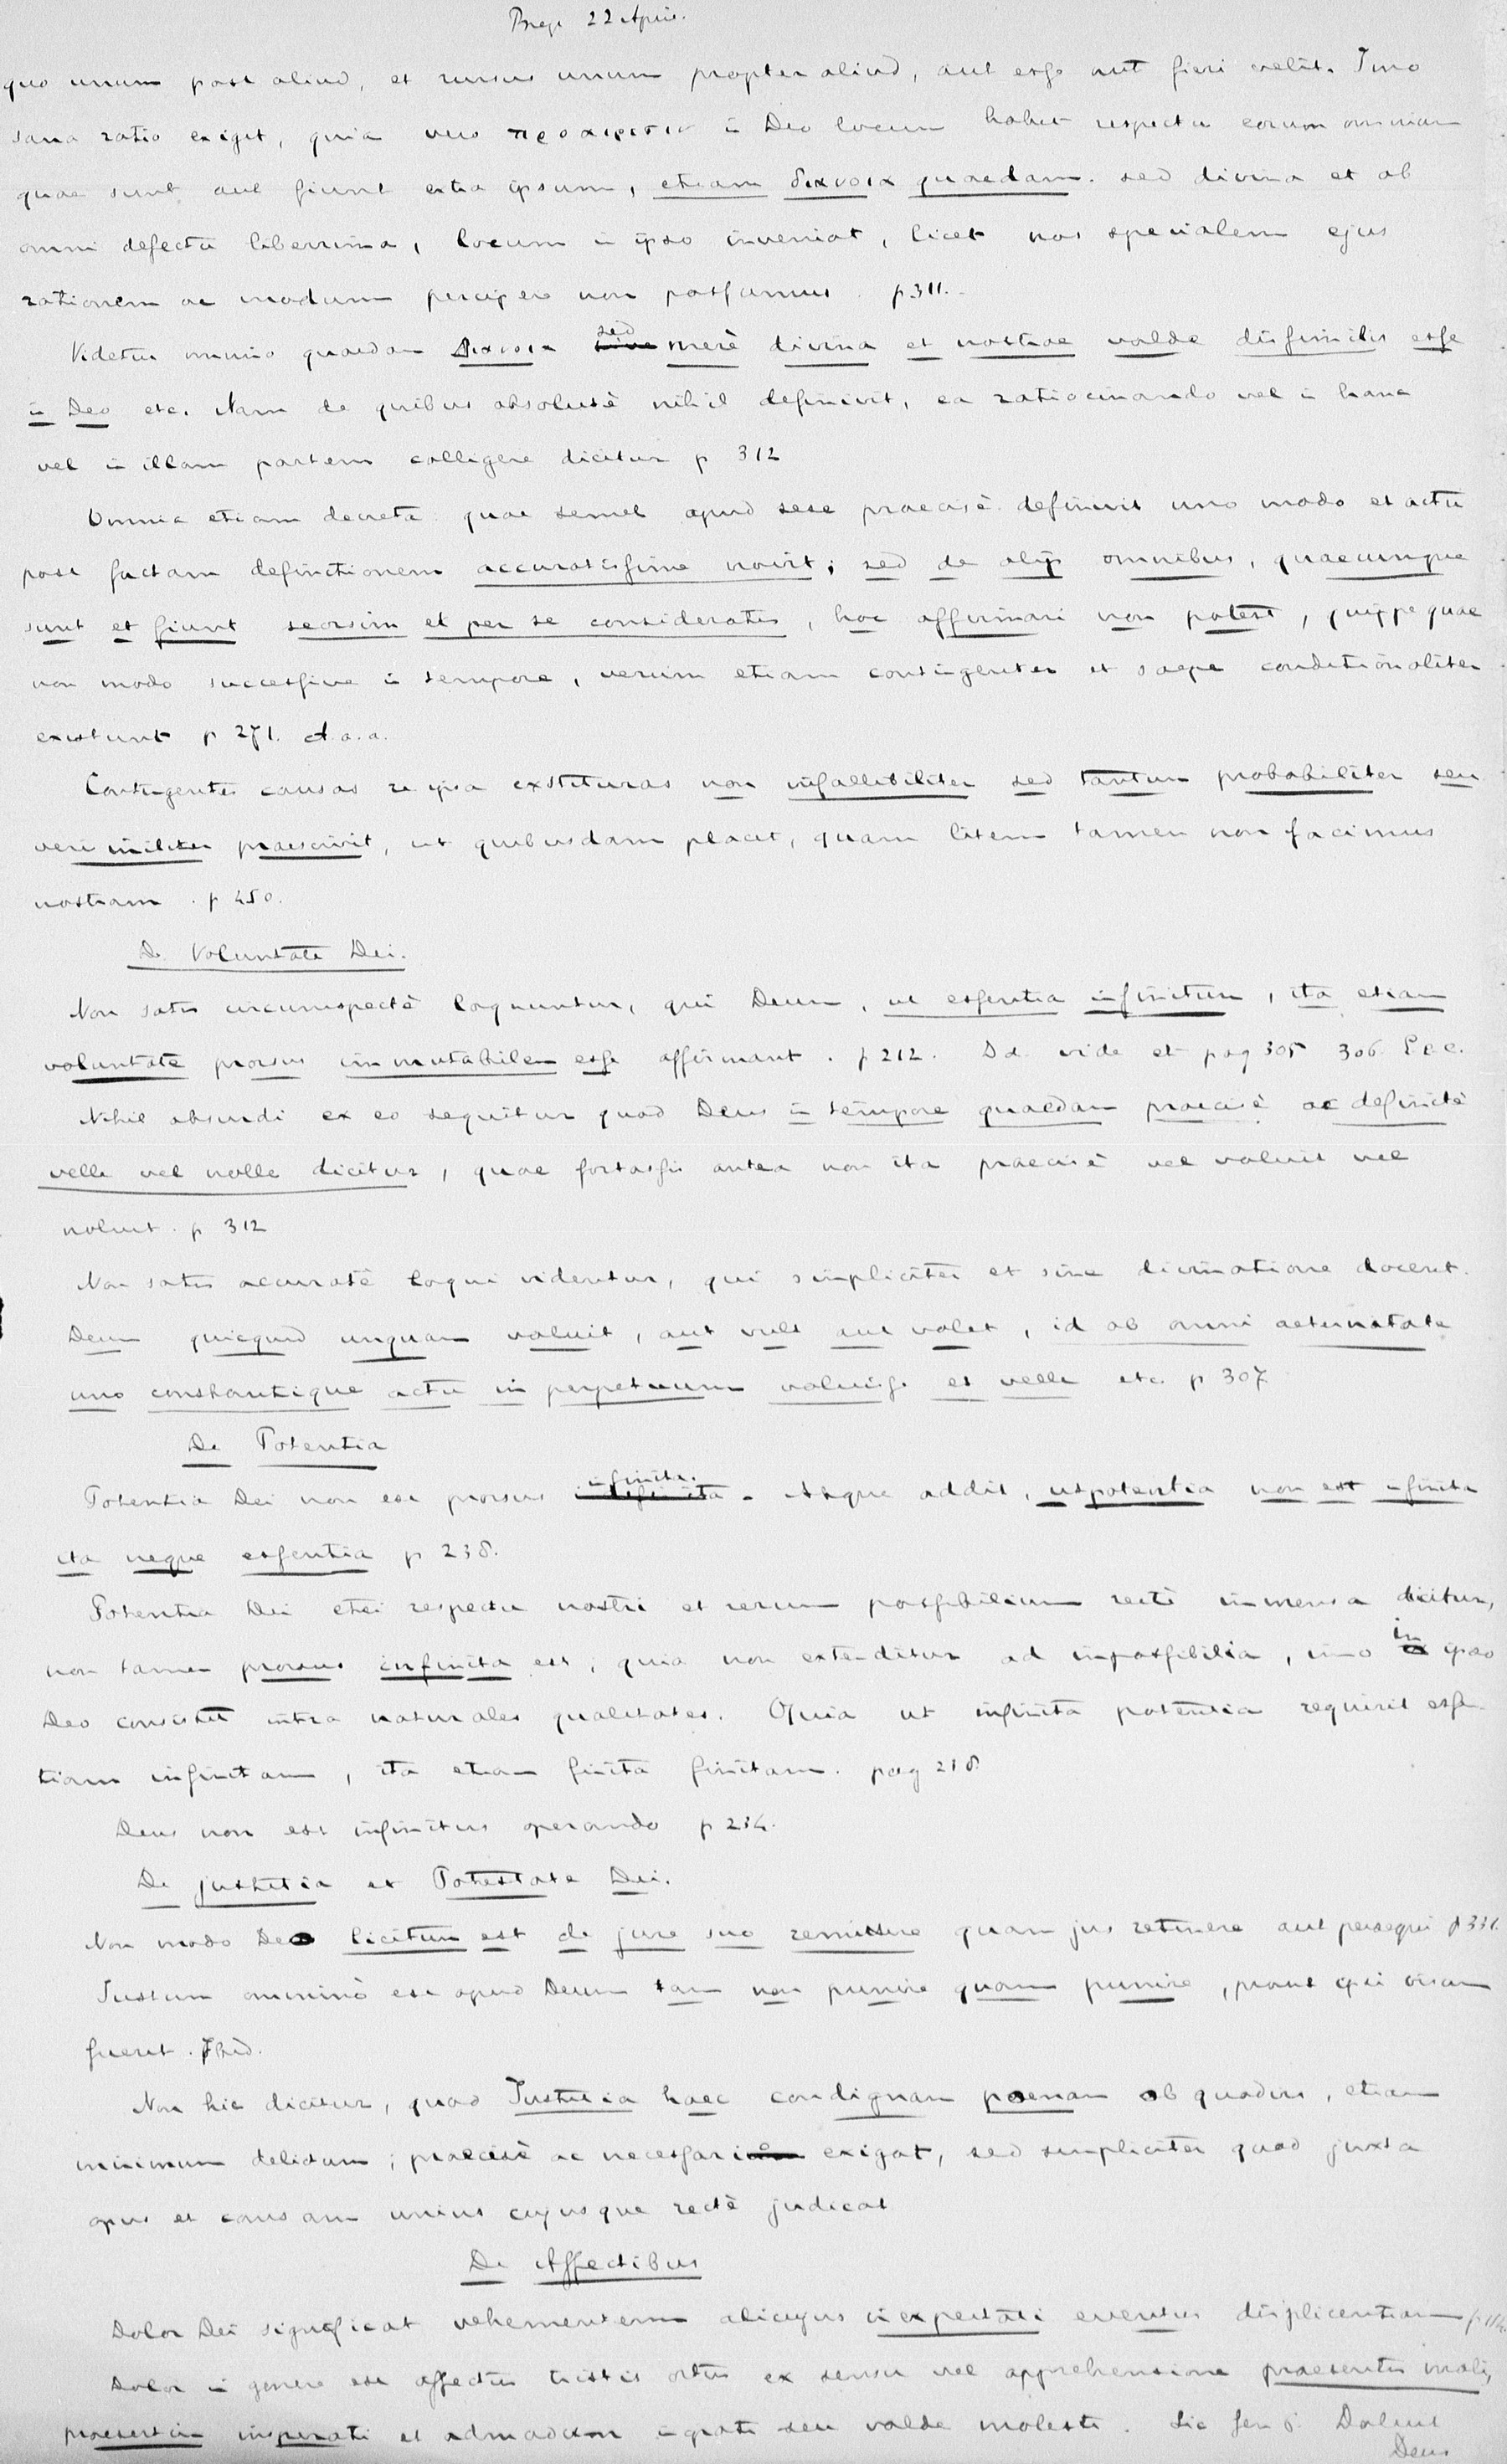 22 April.
quo unum post aliud, et rursus unum propter aliud, aut esse aut fieri velit. Imo
sana ratio exiget, quia vero προαιρεσιν in Deo locum habet respectu eorum omnium
quae sunt aut fiunt extra ipsum, etiam διανοια quaedam. sed divina et ab
omni defectu liberrima, locum in ipso inveniat, licet nos specialem ejus
rationem ac modum percipere non possumus. p 311.
Videtur omnino quaedam διανοια sed merè divina et nostrae valde dissimilis esse
in Deo etc. Nam de quibus absolutè nihil definivit, ea ratiocinando vel in hanc
vel in illam partem colligere dicitur p 312
Omnia etiam decreta quae semel apud sese praecisè definivit uno modo et actu
post factam definitionem accuratissime novit; sed de alijs omnibus, quaecunque
sunt et fiunt seorsim et per se consideratis, hoc affirmari non potest, quippe quae
non modo successive in tempore, verum etiam contingenter et saepe conditionaliter
existunt p 271. d.a.a.
Contingentes causas re ipsa exstituras non infallibiliter sed tantum probabiliter seu
verimiliter praescivit, ut quibusdam placet, quam litem tamen non facimus
nostram. p 450.
De Voluntate Dei.
Non satis circumspectè loquuntur, qui Deum, ut essentia infinitum, ita etiam
voluntatē prorsus immutabilem esse affirmant. p 212. Dd. vide et pag 305 306. Eee.
Nihil absurdi ex eo sequitur quod Deus in tempore quaedam praecisè ac definitè
velle vel nolle dicitur, quae fortassis antea non ita praecisè vel voluit vel
noluit. p 312
Non satis accuratè loqui videntur, qui simpliciter et sine limitatione docent.
Deum quicquid unquam voluit, aut vult aut volet, id ab omni aeternitate
uno constantique actu in perpetuum voluisse et velle etc p 307
De Potentia
Potentia Dei non est prorsus infinita. Atque addit, ut potentia non est infinita
ita neque essentia p 238.
Potentia Dei etsi respectu nostri et rerum possibilium rectè immensa dicitur,
non tamen prorsus infinita est, quia non extenditur ad impossibilia, imo in ipso
Deo consistit intra naturales qualitates. Quia ut infinita potentia requirit essen
tiam infinitam, ita etiam finita finitam. pag 218.
Deus non est infinitus operando p 234.
De justitia et Potestate Dei.
Non modo Deo licitum est de jure suo remittere quam jus retinere aut persequi p 331.
Justum omninò est apud Deum tam non punire quam punire, prout ipsi visum
fuerit. Ibid.
Non hic dicitur, quod Justitia haec condignam poenam ob quodvis, etiam
minimum delictum; praecisè ac necessariò exigat, sed simpliciter quod juxta
opus et causam unius cujusque rectè judicat
De Affectibus
Dolor Dei significat vehementem alicujus inexpectati eventus displicentiam
Dolor in genere est affectus tristis ortus ex sensu vel apprehensione praesentis mali,
praesertim insperati et admodum ingrati seu valde molesti. Sic Gen 6. Doluit
Deus